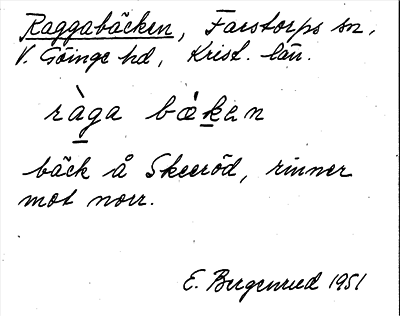 Raggabäcken, Farstorps sn,
V. Göinge hd, Krist. län.
ràga bækən
bäck å Skeeröd, rinner
mot norr.
E. Bergenrud 1951